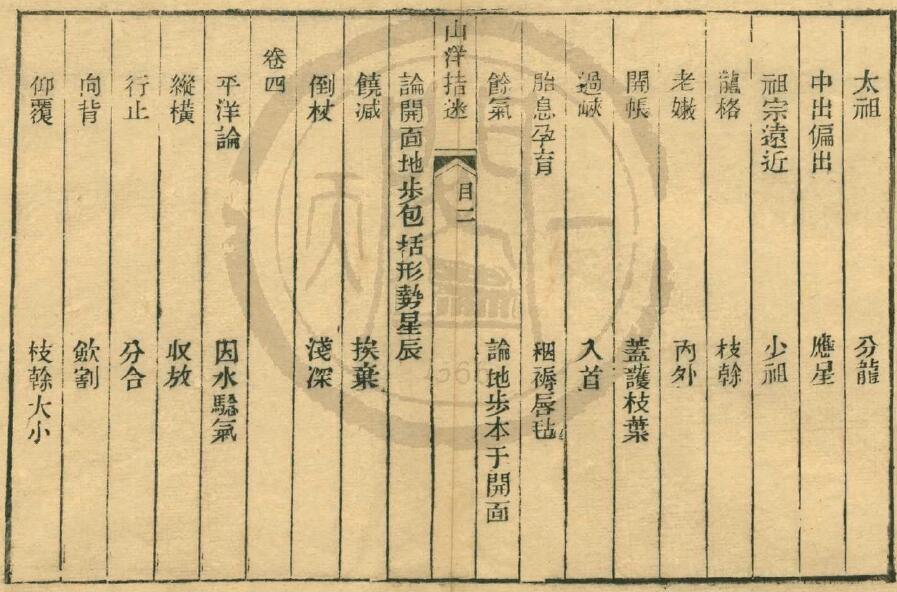 太祖 分龍
中出偏出 應星
祖宗遠近 少祖
龍格 枝榦
老嫩 內外
開帳 蓋護枝葉
過峽 入首
胎息孕育 裀褥唇毡
餘氣 論地步本于開面
山洋指迷 目二
論開面地步包括形勢星辰
饒减 挨棄
倒杖 淺深
卷四
平洋論 因水驗氣
縱橫 収放
行止 分合
向背 歛割
仰覆 枝榦大小